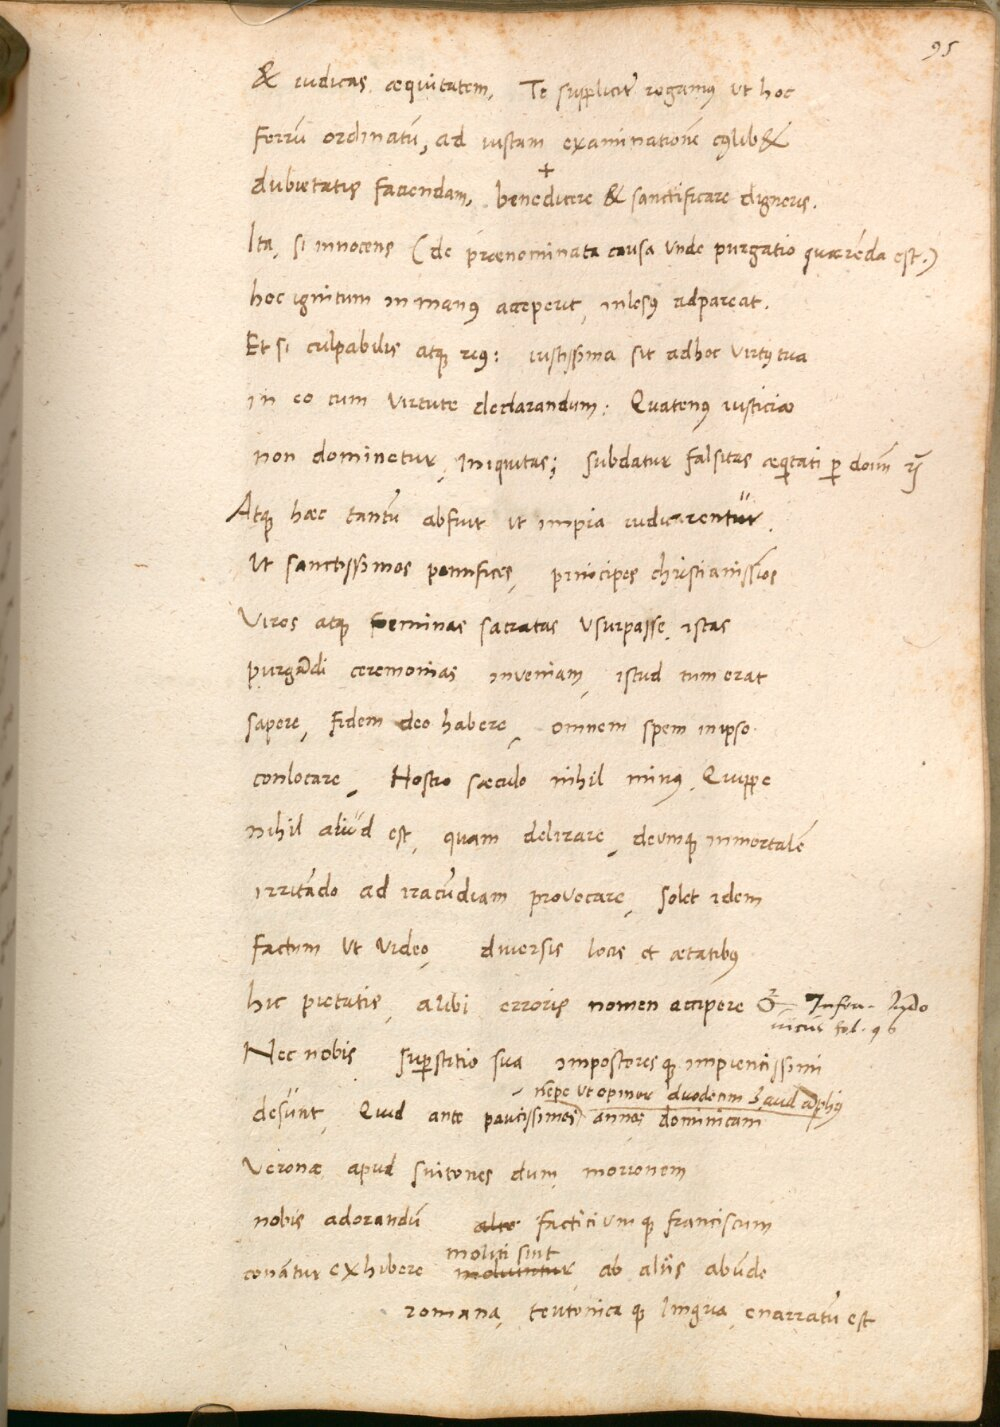 95
& iudicas æquitatem, Te supplicit̃ rogamꝰ ut hoc
ferrũ ordinatũ, ad iustam examinationẽ cꝰlib&
+
dubietatis faciendam, benedicere & sanctificare digneris.
Ita, si innocens (de prænominata causa unde purgatio quærẽda est.)
hoc ignitum in manꝰ acceperit, inlesꝰ adpareat.
Et si culpabilis atq; reꝰ: iustissima sit adhoc virtꝰ tua
in eo cum virtute declarandum: Quatenꝰ iusticiæ
non dominetur iniquitas; subdatur falsitas æq̃tati ꝑ doim̃
Atq; hæc tantũ abfuit ut impia iudicarentur.
Ut sanctissimos pontifices, principes christianissĩos
Viros atq; feminas sacratas usurpasse istas
purgãdi ceremonias inveniam, istud tum erat
sapere, fidem deo habere, omnem spem in ipso
conlocare, Nostro sæculo nihil minꝰ. Quippe
nihil aliud est, quam delirare, deumq; inmortalẽ
irritãdo ad iracũdiam provocare, solet idem
factum ut video, diversis locis et ætatibꝰ
hic pietatis, alibi erroris nomen accipere Infra. Ludo
vicus fol. 96
Nec nobis suꝑstitio sua impostoresq; impientissimi
nẽpe ut opinor duodecim
desunt, Quid ante paucissimos annos dominicam
Veronæ apud suitones dum morionem
nobis adorandũ alte facticiumq; franciscum
moliti sint
conãtur exhibere moliuntur ab aliis abũde
romana, teutonicaq; lingua enarratũ est